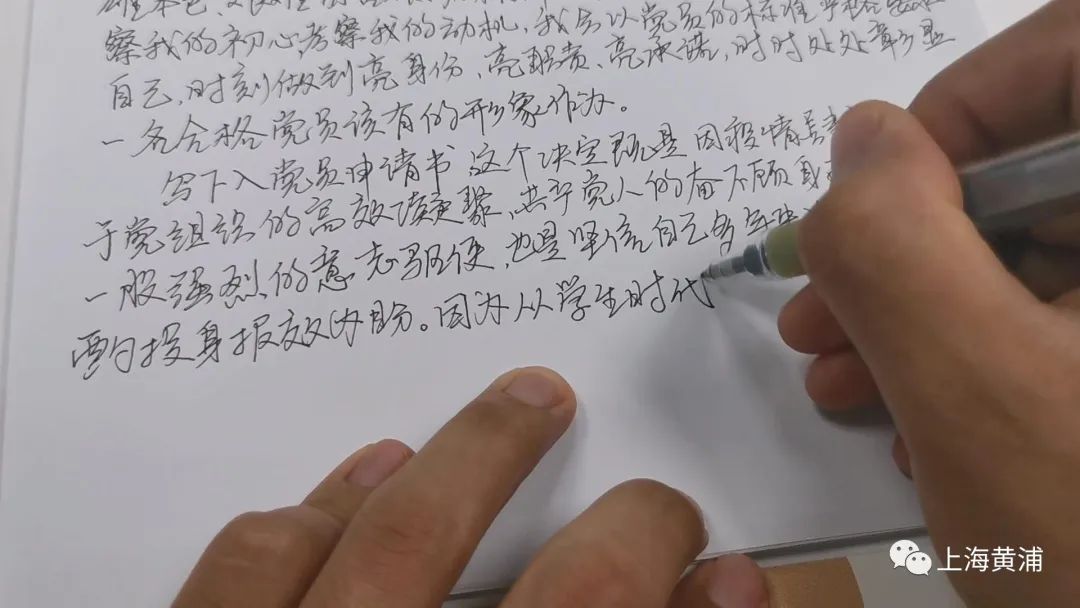 察我的初心考察我的动机,我会以党员的标准严格
自己,时刻做到亮身份、亮职责、亮承诺,时时处处彰显
一名合格党员该有的形象作为。
写下入党员申请书,这个决定既是因疫情
于党组织的高效凝聚、共产党人的奋不顾身
一股强烈的意志驱使,也是坚信自己多年
要投身报效的。因为从学生时代
上海黄浦